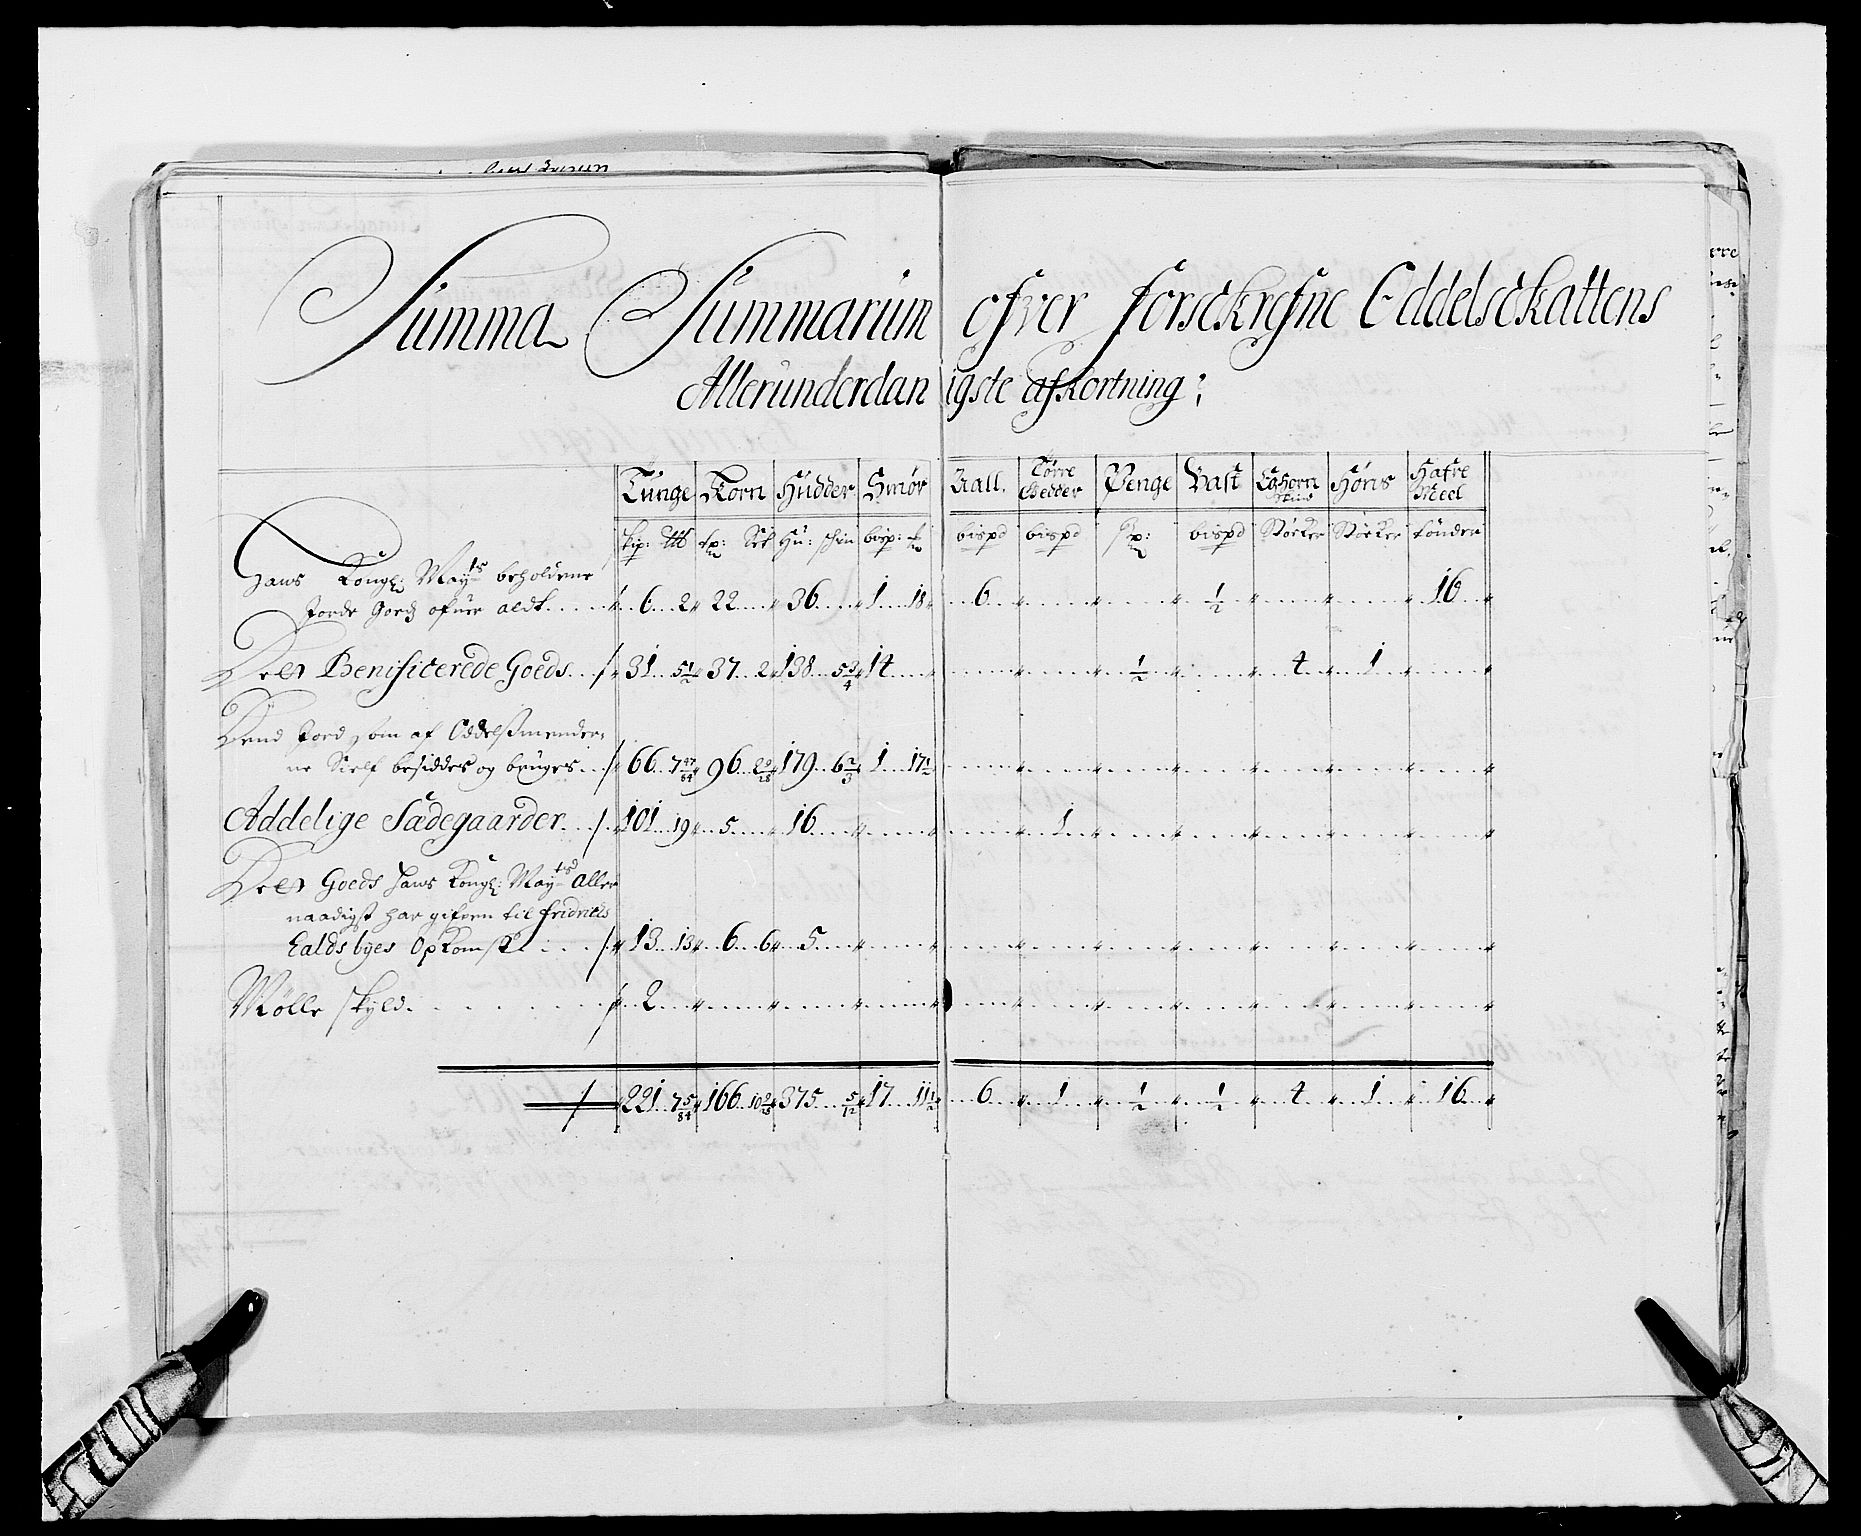 Summa Summarum ofver forsckrefne Oddelsckattens
Allerunderdanigste afkortning;
Tunge Korn Hudder Smør Tall. Tørre Gedder Penge Bast Eghorn skind Høns Hafre Meel
skip: ℔ tp: Set Hu: skin bisp: bispd bispd bispd Støcker Støcker tønder
Hans Kongl: Mayts beholdene
Jorde Goedz ofuer aldt 6 2 22 36 1 18 6 1/2 16
Det Benificerede Goeds 31 5 1/2 37 2 138 5 3/4 14 1/2 4 1
Dend Jord som af Oddelssmender-
ne Sielf besiddes og bruges 66 7 47/84 96 179 6 2/3 1 17 1/2
Addelige Sædegaarder 101 19 5 16 1
Det Goeds Hans Kongl: Mayts Aller
naadigst har gifven til fridrichs
Haldsbyes Opkomst 13 13 6 6 5
Mølle skyld 2
221 7 5/84 166 10 375 5/12 17 11 1/2 6 1 1/2 1/2 4 1 16